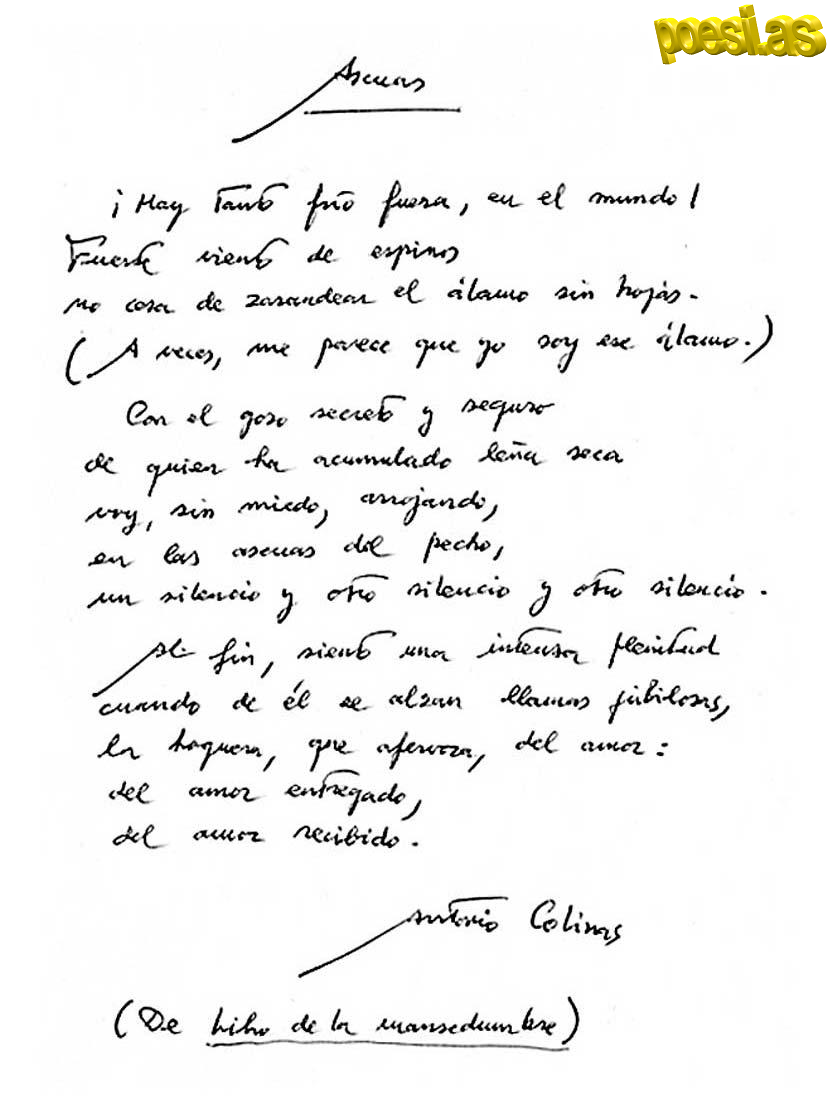 poesi.as
Ascuas
¡Hay tanto frío fuera, en el mundo!
Fuerte viento de espinos
no cesa de zarandear el álamo sin hojas.
(A veces, me parece que yo soy ese álamo.)
Con el gozo secreto y seguro
de quien ha acumulado leña seca
voy, sin miedo, arrojando,
en las ascuas del pecho,
un silencio y otro silencio y otro silencio.
Al fin, siento una intensa plenitud
cuando de él se alzan llamas jubilosas,
la hoguera, que afervora, del amor:
del amor entregado,
del amor recibido.
Antonio Colinas
(De Libro de la mansedumbre)